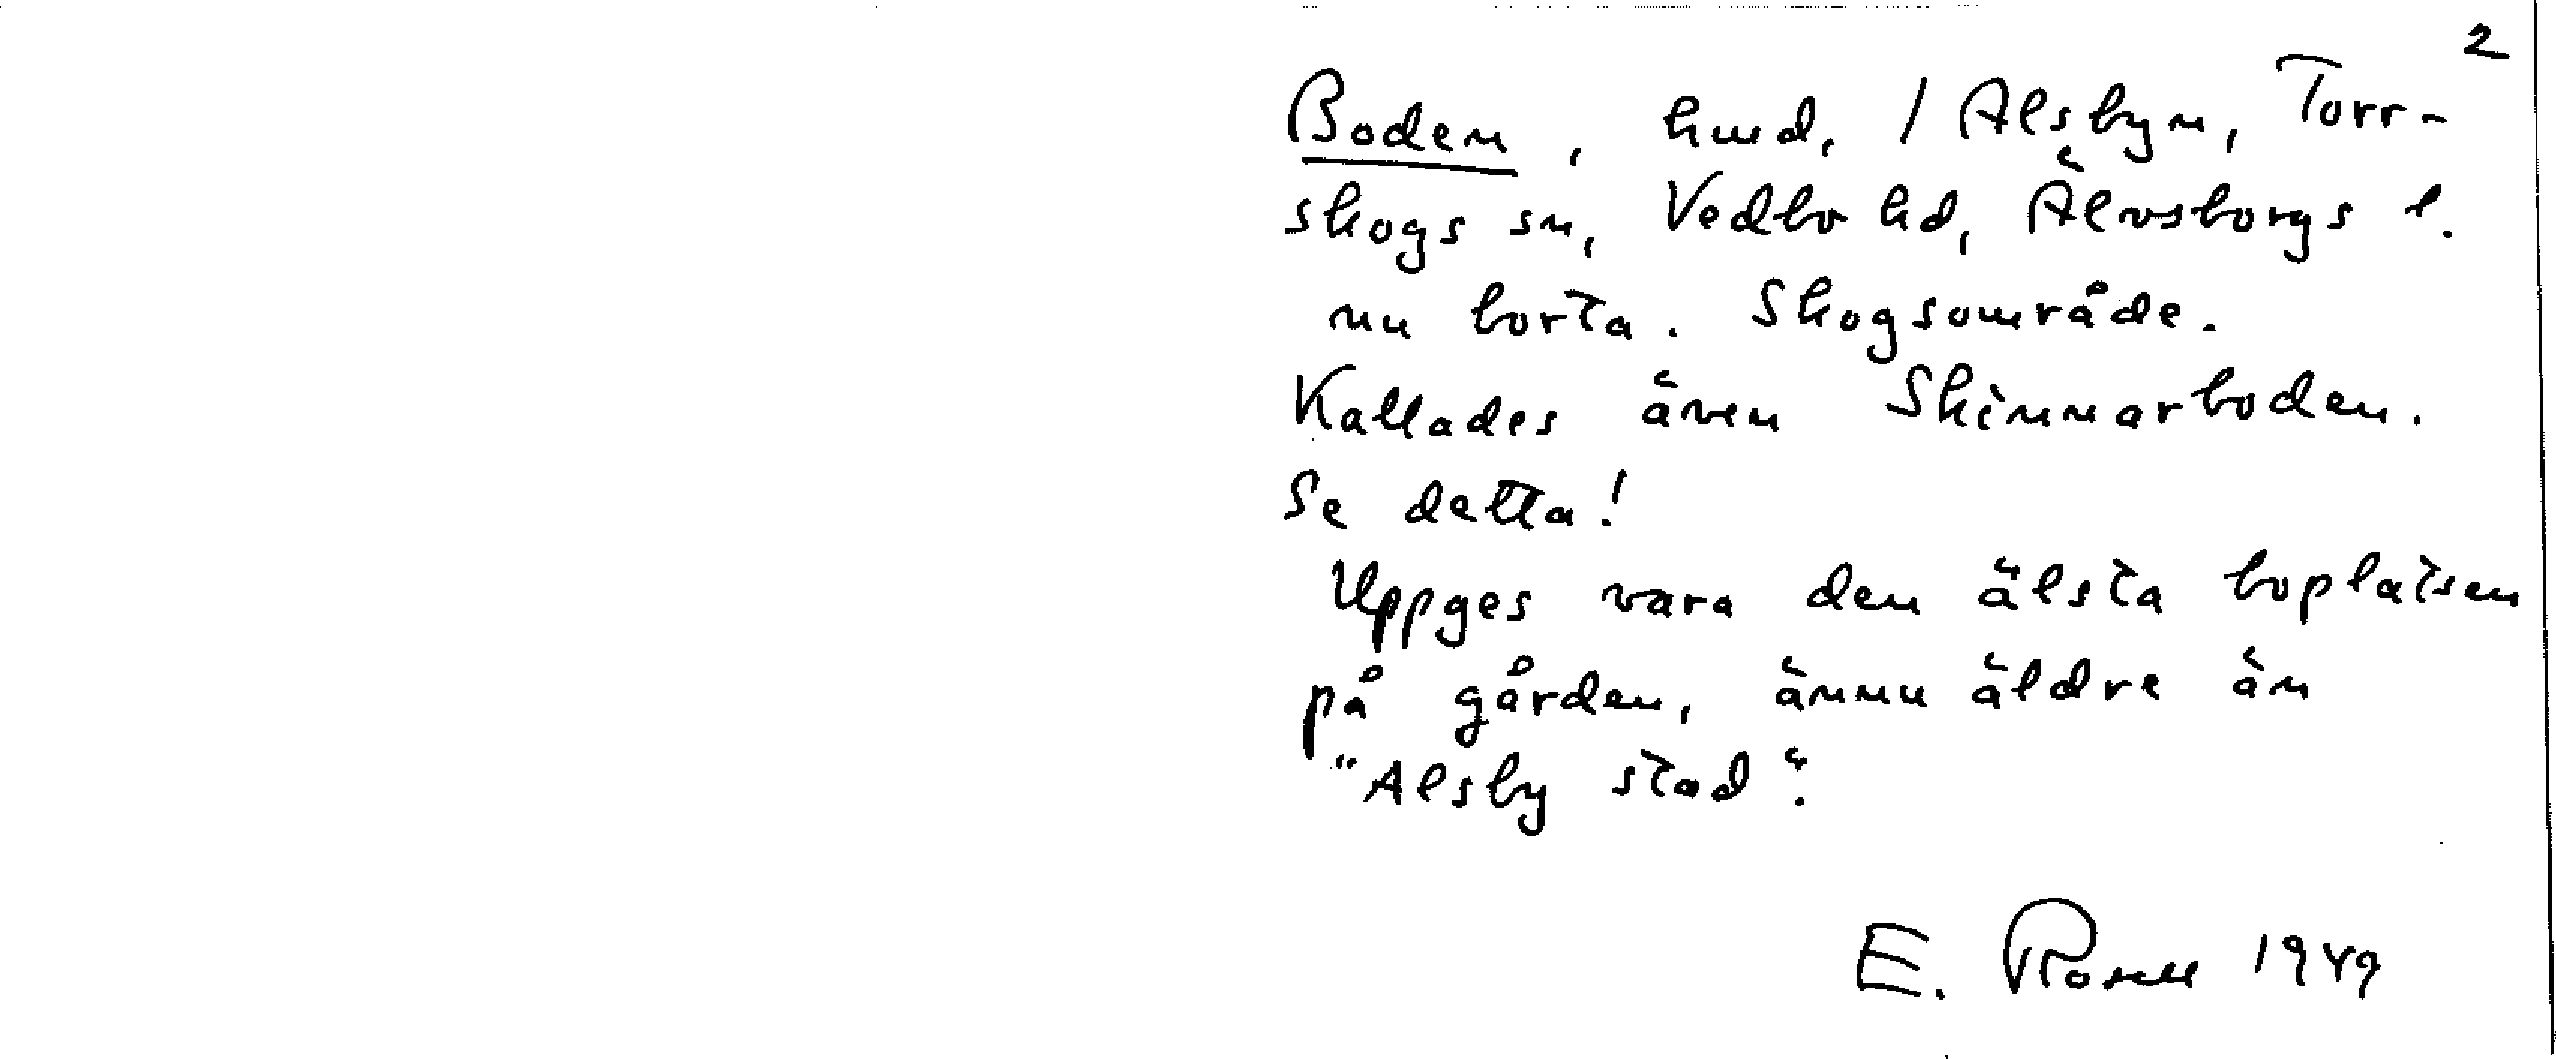 2
Boden, hmd, / Alsbyn, Torr-
skogs sn, Vedbo hd, Älvsborgs l.
nu borta. Skogsområde.
Kallades även Skinnarboden.
Se detta!
Uppges vara den älsta boplatsen
på gården, ännu äldre än
"Alsby stad".
E. Rosell 1949